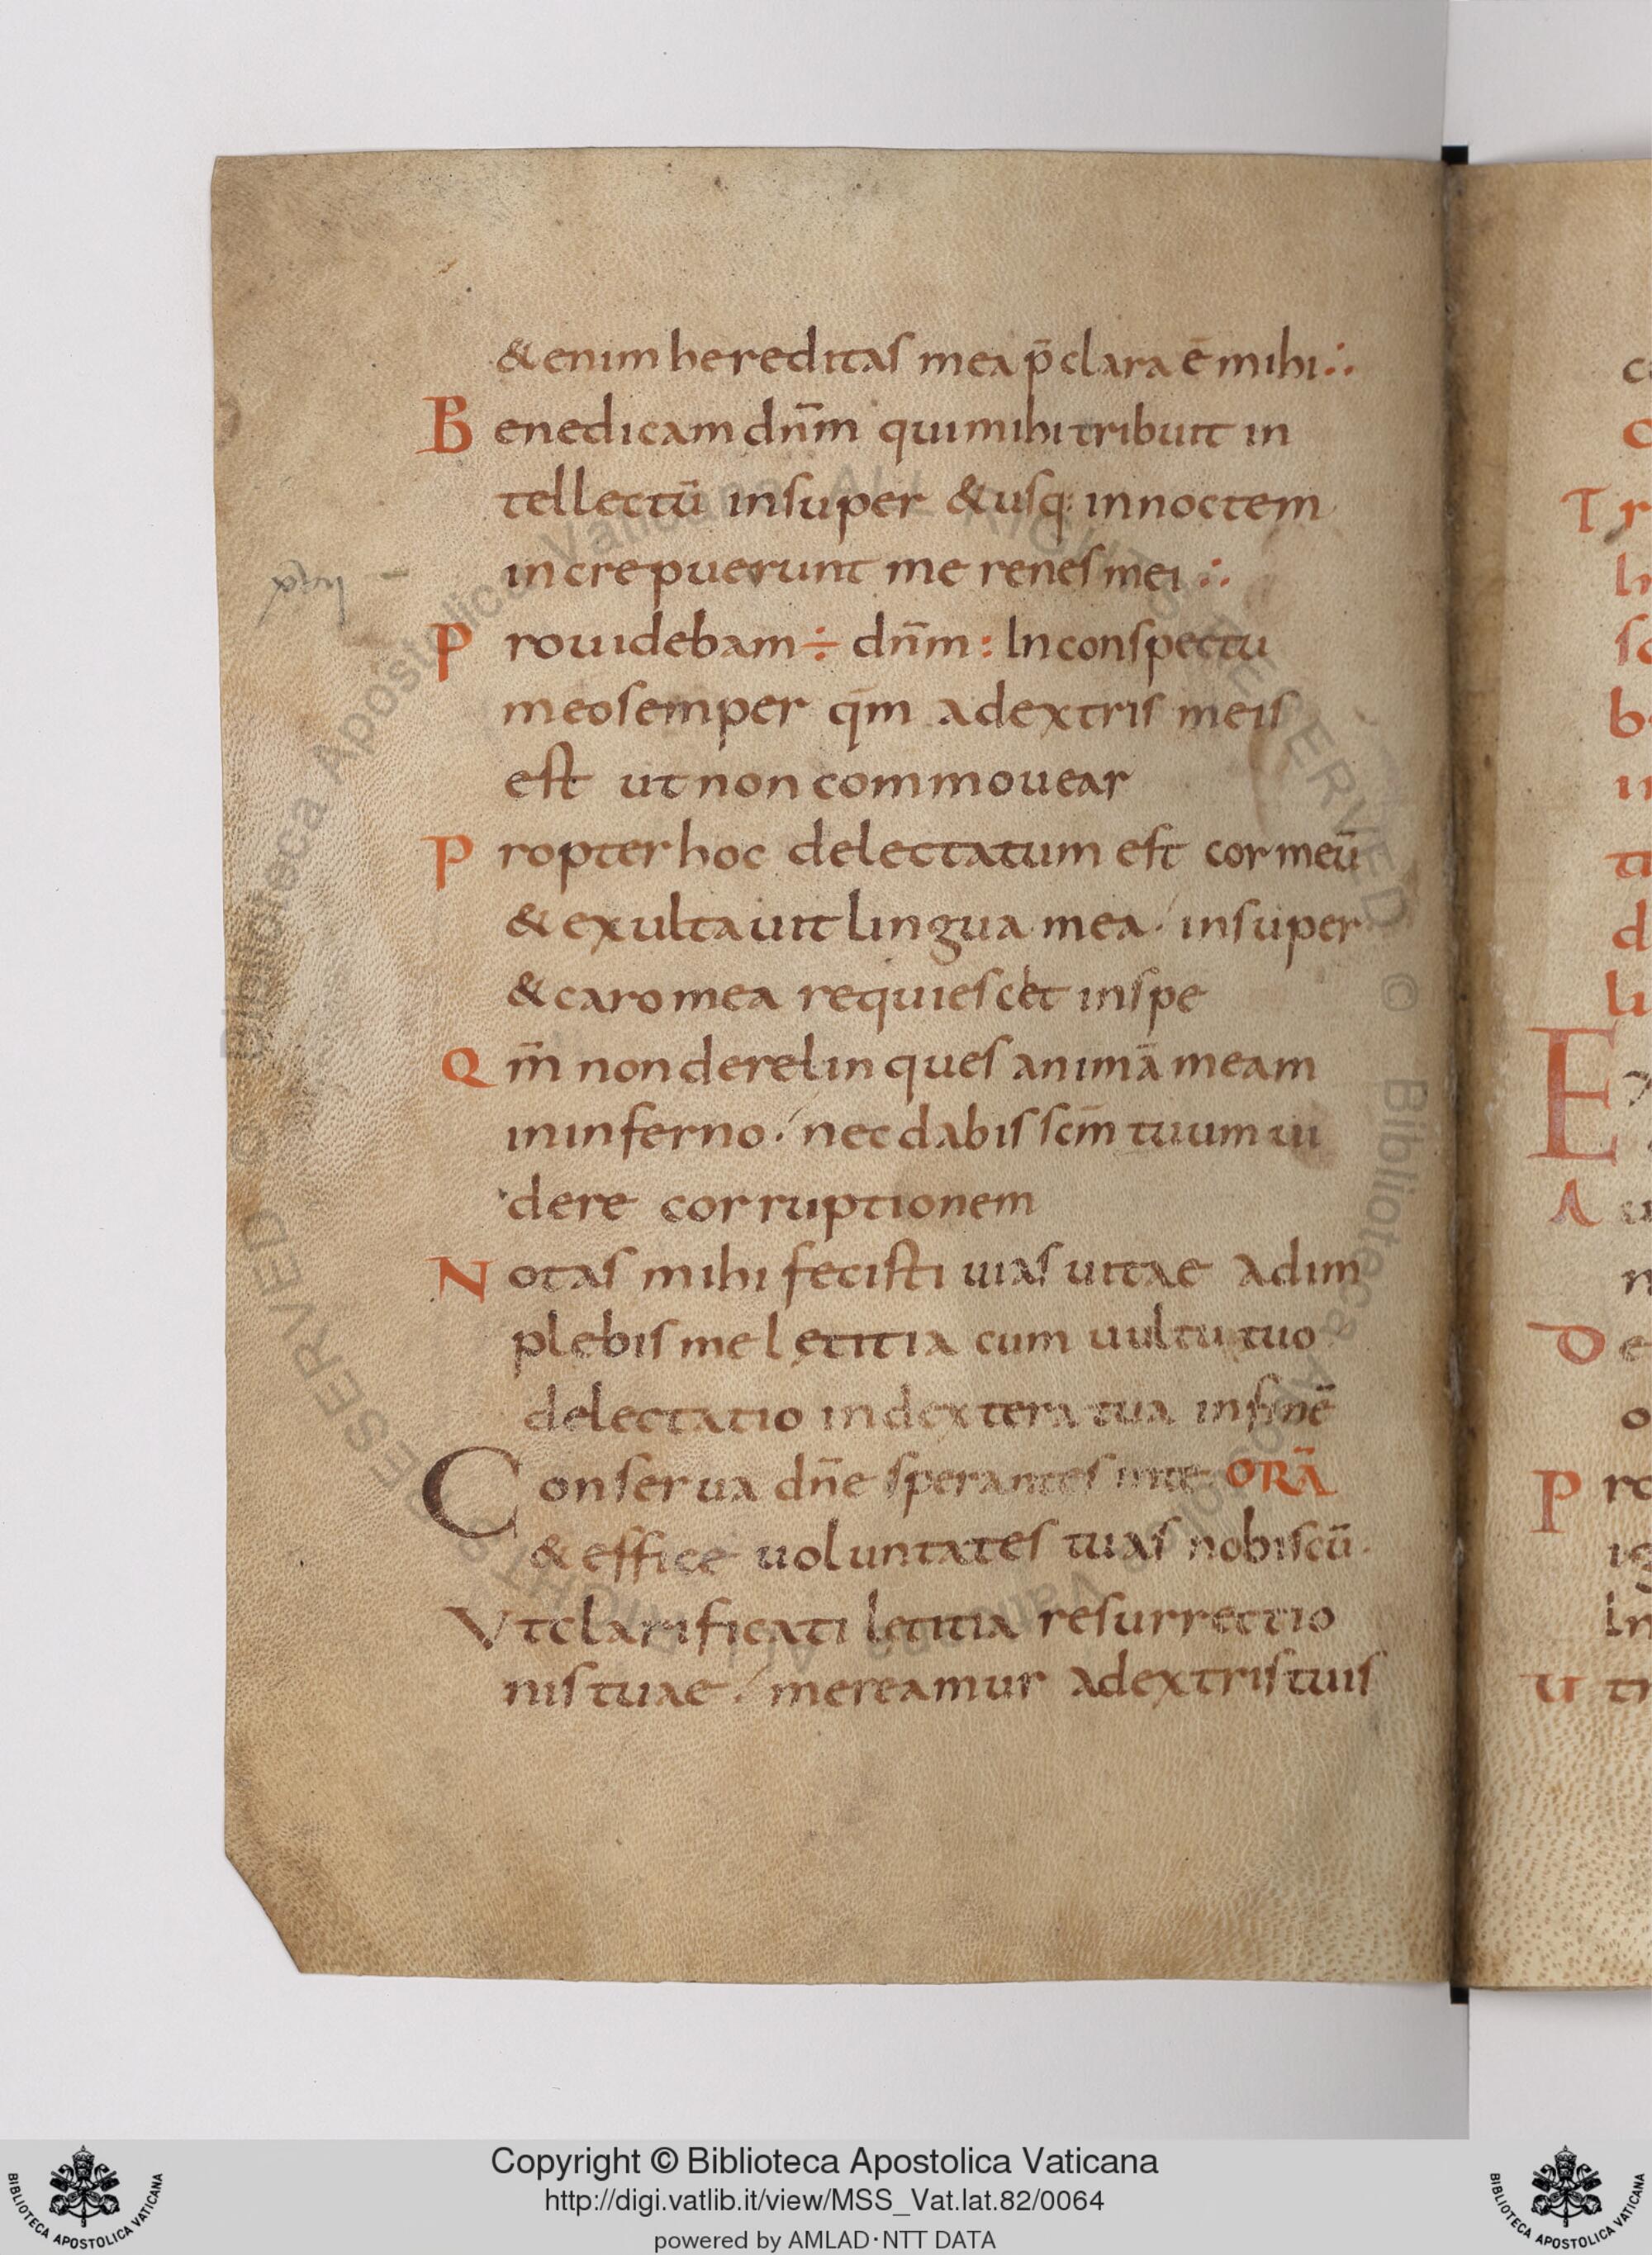 & enim hereditas mea p̄clara ē mihi :.
Benedicam dn̄m qui mihi tribuit in
tellectū insuper & usq: in noctem
increpuerunt me renes mei :.
Prouidebam ÷ dn̄m : In conspectu
meo semper qm̄ a dextris meis
est ut non commouear
Propter hoc delectatum est cor meū
& exultauit lingua mea ./ insuper
& caro mea requiescet in spe
Qm̄ non derelinques animā meam
in inferno ./ nec dabis scm̄ tuum ui
dere corruptionem
Notas mihi fecisti uias uitae adim
plebis me lętitia cum uultu tuo
delectatio in dextera tua in finē
Conserua dn̄e sperantes in te ORĀ
& effice uoluntates tuas nobiscū.
Vt clarificati letitia resurrectio
nis tuae ./ mereamur a dextris tuis
Copyright © Biblioteca Apostolica Vaticana
http://digi.vatlib.it/view/MSS_Vat.lat.82/0064
powered by AMLAD·NTT DATA
BIBLIOTECA APOSTOLICA VATICANA
BIBLIOTECA APOSTOLICA VATICANA